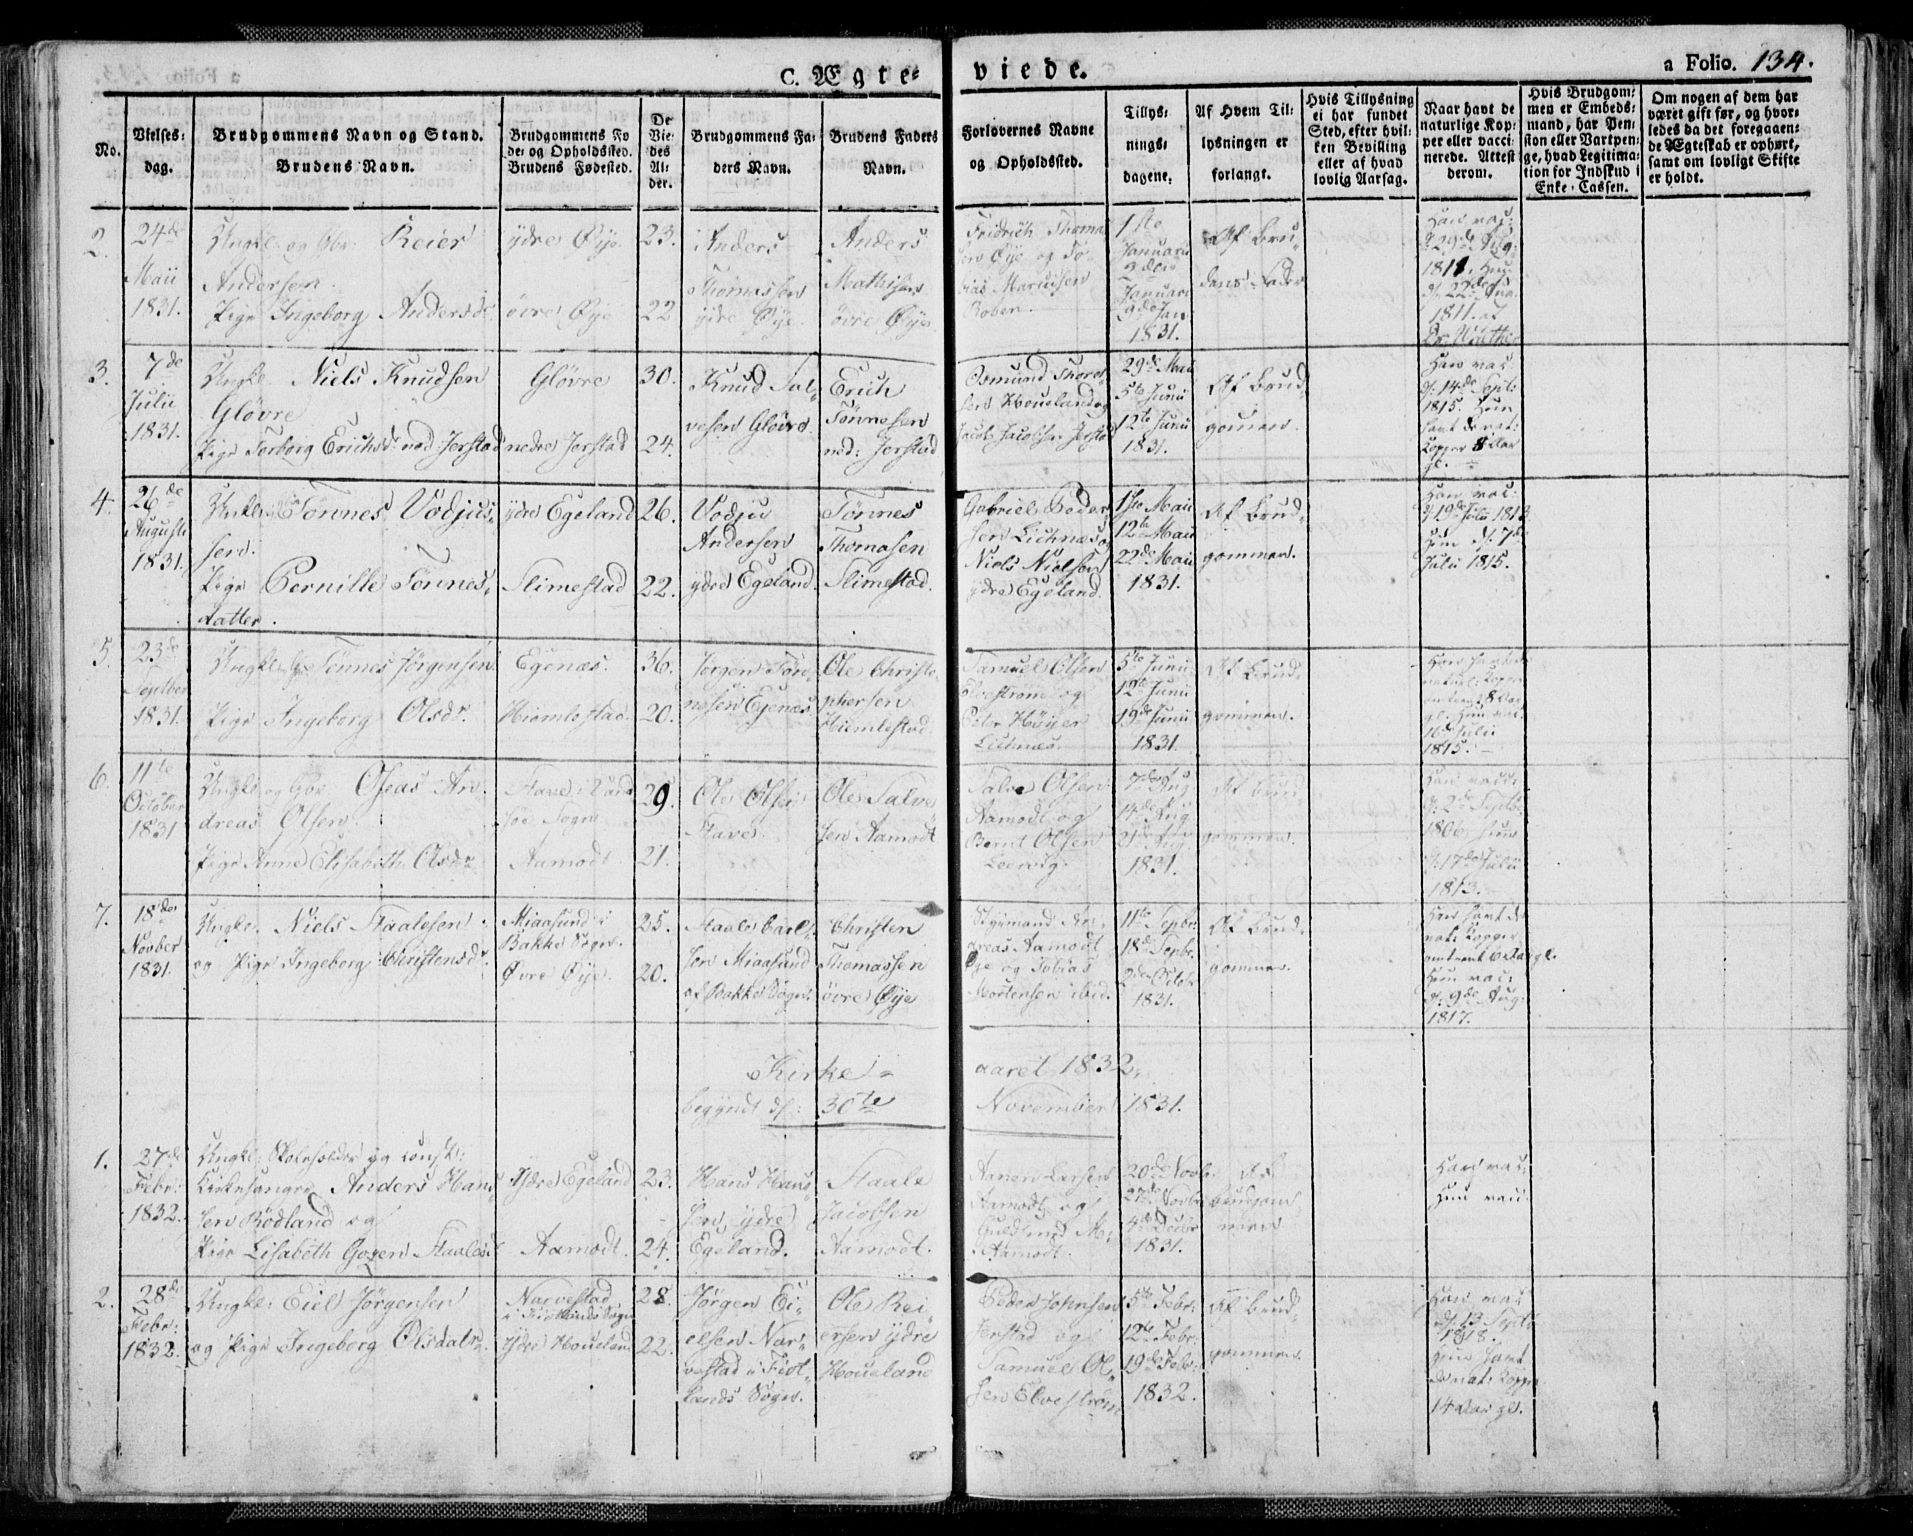 C. Ægte= viede.
a Folio. 134.
No.
Vielses-
dag.
Brudgommens Navn og Stand.
Brudens Navn.
Brudgommens Fø
de- og Opholdssted.
Brudens Fødested.
De
Vie-
des
Al-
der.
Brudgommens Fa-
ders Navn.
Brudens Faders
Navn.
Forlovernes Navne
og Opholdssted.
Tillys-
nings-
dagene.
Af Hvem Til-
lysningen er
forlangt.
Hvis Tillysning
ei har fundet
Sted, efter hvil-
ken Bevilling
eller af hvad
lovlig Aarsag.
Naar havt de
naturlige Kop-
per eller vacci-
nerede. Attest
derom.
Hvis Brudgom-
men er Embeds-
mand, har Pen-
sion eller Vartpen-
ge, hvad Legitima-
tion for Indskud i
Enke-Cassen.
Om nogen af dem har
været gift før, og hvor-
ledes da det foregaaen-
de Ægteskab er ophørt,
samt om lovligt Skifte
er holdt.
2.
24de
Maii
1831.
Ungk. og Gbr. Reier
Andersen
Pige Ingeborg Andersdr
ydre Øye
øvre Øye
23.
22
Anders
Thomassen
ydre Øye.
Anders
Mathisen
øvre Øye
Fridrich Thoma-
sen Øye og To-
bias
1ste
Januarii
2den
Januarii
9de Jan
1831.
Af Bru-
dens Fader
Han vac:
d. 29de Aug:
1811. Hun
d. 22de Aug.
1811. at
3.
7de
Julii
1831.
Ungk. Niels Knudsen
Gløvre
Pige Torborg Ericksdr ned Jerstad
Gløvre
nedre Jerstad
30.
24.
Knud Sal-
vesen Gløvre
Erich
Tønnesen
ned: Jerstad
Osmund Thord-
sen Houeland og
Jacob Jacobsen Jerstad
29de Mai
5te Junii
12te Junii
1831.
Af Brud-
gomen.
Han vac
d. 14de Sept:
1815. Hun
havt de nat:
Kopper 8 Aar
gl.
4.
26de
Augusti
1831.
Ungk. Tønnes Vodjus-
sen.
Pige Pernille Tønnes-
datter.
ydre Egeland
Slimestad
26.
22.
Vodju
Andersen
ydre Egeland.
Tønnes
Thomasen
Slimestad.
Gabriel Peder-
sen Lichnæs og
Niels Nielsen
ydre Egeland.
1ste Maii
12te Maii
22de Maii
1831.
Af Brud-
gommen.
Han vac:
d. 19de Julii 1813.
Hun d. 7de
Julii 1815.
5.
23de
Septber
1831.
Ungk. Tønnes Jørgensen.
Pige Ingeborg Olsdr.
Egenæs.
Hiemlestad.
36.
20.
Jørgen Tøn-
nesen Egenæs
Ole Christo-
phersen
Hiemlestad.
Samuel Olsen
Elvestrøm og
Peder Høyer
Lichnæs.
5te Junii
12te Junii
19de Junii
1831.
Af Brud-
gommen.
Han havt de
naturl: Kopper
omtrent 8 Aar
gl. Hun vac:
16de Julii
1815.
6.
11te
October
1831
Ungk. og Gbr Oseas An-
dreas Olsen.
Pige Anne Elisabeth Olsdr
Stave i
Sogn
Aamodt.
29.
21.
Ole Olsen
Stave.
Ole Salve-
sen Aamodt
Salve Olsen
Aamodt og
Bernt Olsen
Leervig.
7de Aug
14de Aug
21de Aug.
1831.
Af Brud-
gommen.
Han vacc:
d. 2de Septb:
1806. Hun
d. 17de Julii
1813.
7.
18de
Novber
1831.
Ungk. Niels Staalesen
og Pige Ingeborg Christensdr.
Miaasund i
Bakke Sogn.
Øvre Øye.
25.
20.
Staale Carl-
sen Miaasund
af Bakke Sogn.
Christen
Thomassen
øvre Øye
Styrmand An-
dreas Aamodt
Øye og Tobias
Mortensen ibid.
11te Septbr.
18de Septbr.
2den Octbr.
1831.
Af Brud-
gommen.
Han havt de
nat: Kopper
omtrent 6 Aar gl.
Hun vac:
d. 9de Aug:
1817.
Kirke- aaret 1832,
begyndt d. 30te November 1831.
1.
27de
Febr:
1832.
Ungk. Skoleholder og const:
Kirkesanger Anders Hans-
sen Rødland og
Pige Lisabeth Goren Staalesdr
Ydre Egeland
Aamodt.
23.
24.
Hans Hans-
sen ydre
Egeland.
Staale
Jacobsen
Aamodt.
Aanen Larsen
Aamodt og
Aamodt.
20de Novbr
27de Novbr
4de Decbr
1831.
Af
Brudgom-
men
Han vac:
Hun vac:
2.
28de
Febr:
1832.
Ungk. Eiel Jørgensen
og Pige Ingeborg Olsdatr.
Narvestad
i Fiotlands Sogn
Ydre Houeland
28.
22.
Jørgen Ei-
elsen Nar-
vestad i Fiot-
lands Sogn.
Ole Rei-
ersen ydre
Houeland
Peder Johnsen
Jerstad og
Samuel Ol-
sen Elvestrøm
5te Febr:
12te Febr:
19de Febr:
1832.
Af Brud-
gommen.
Han vac
d. 13 Septb
1818.
Hun havt
de nat: Kopper
14 Aar gl.